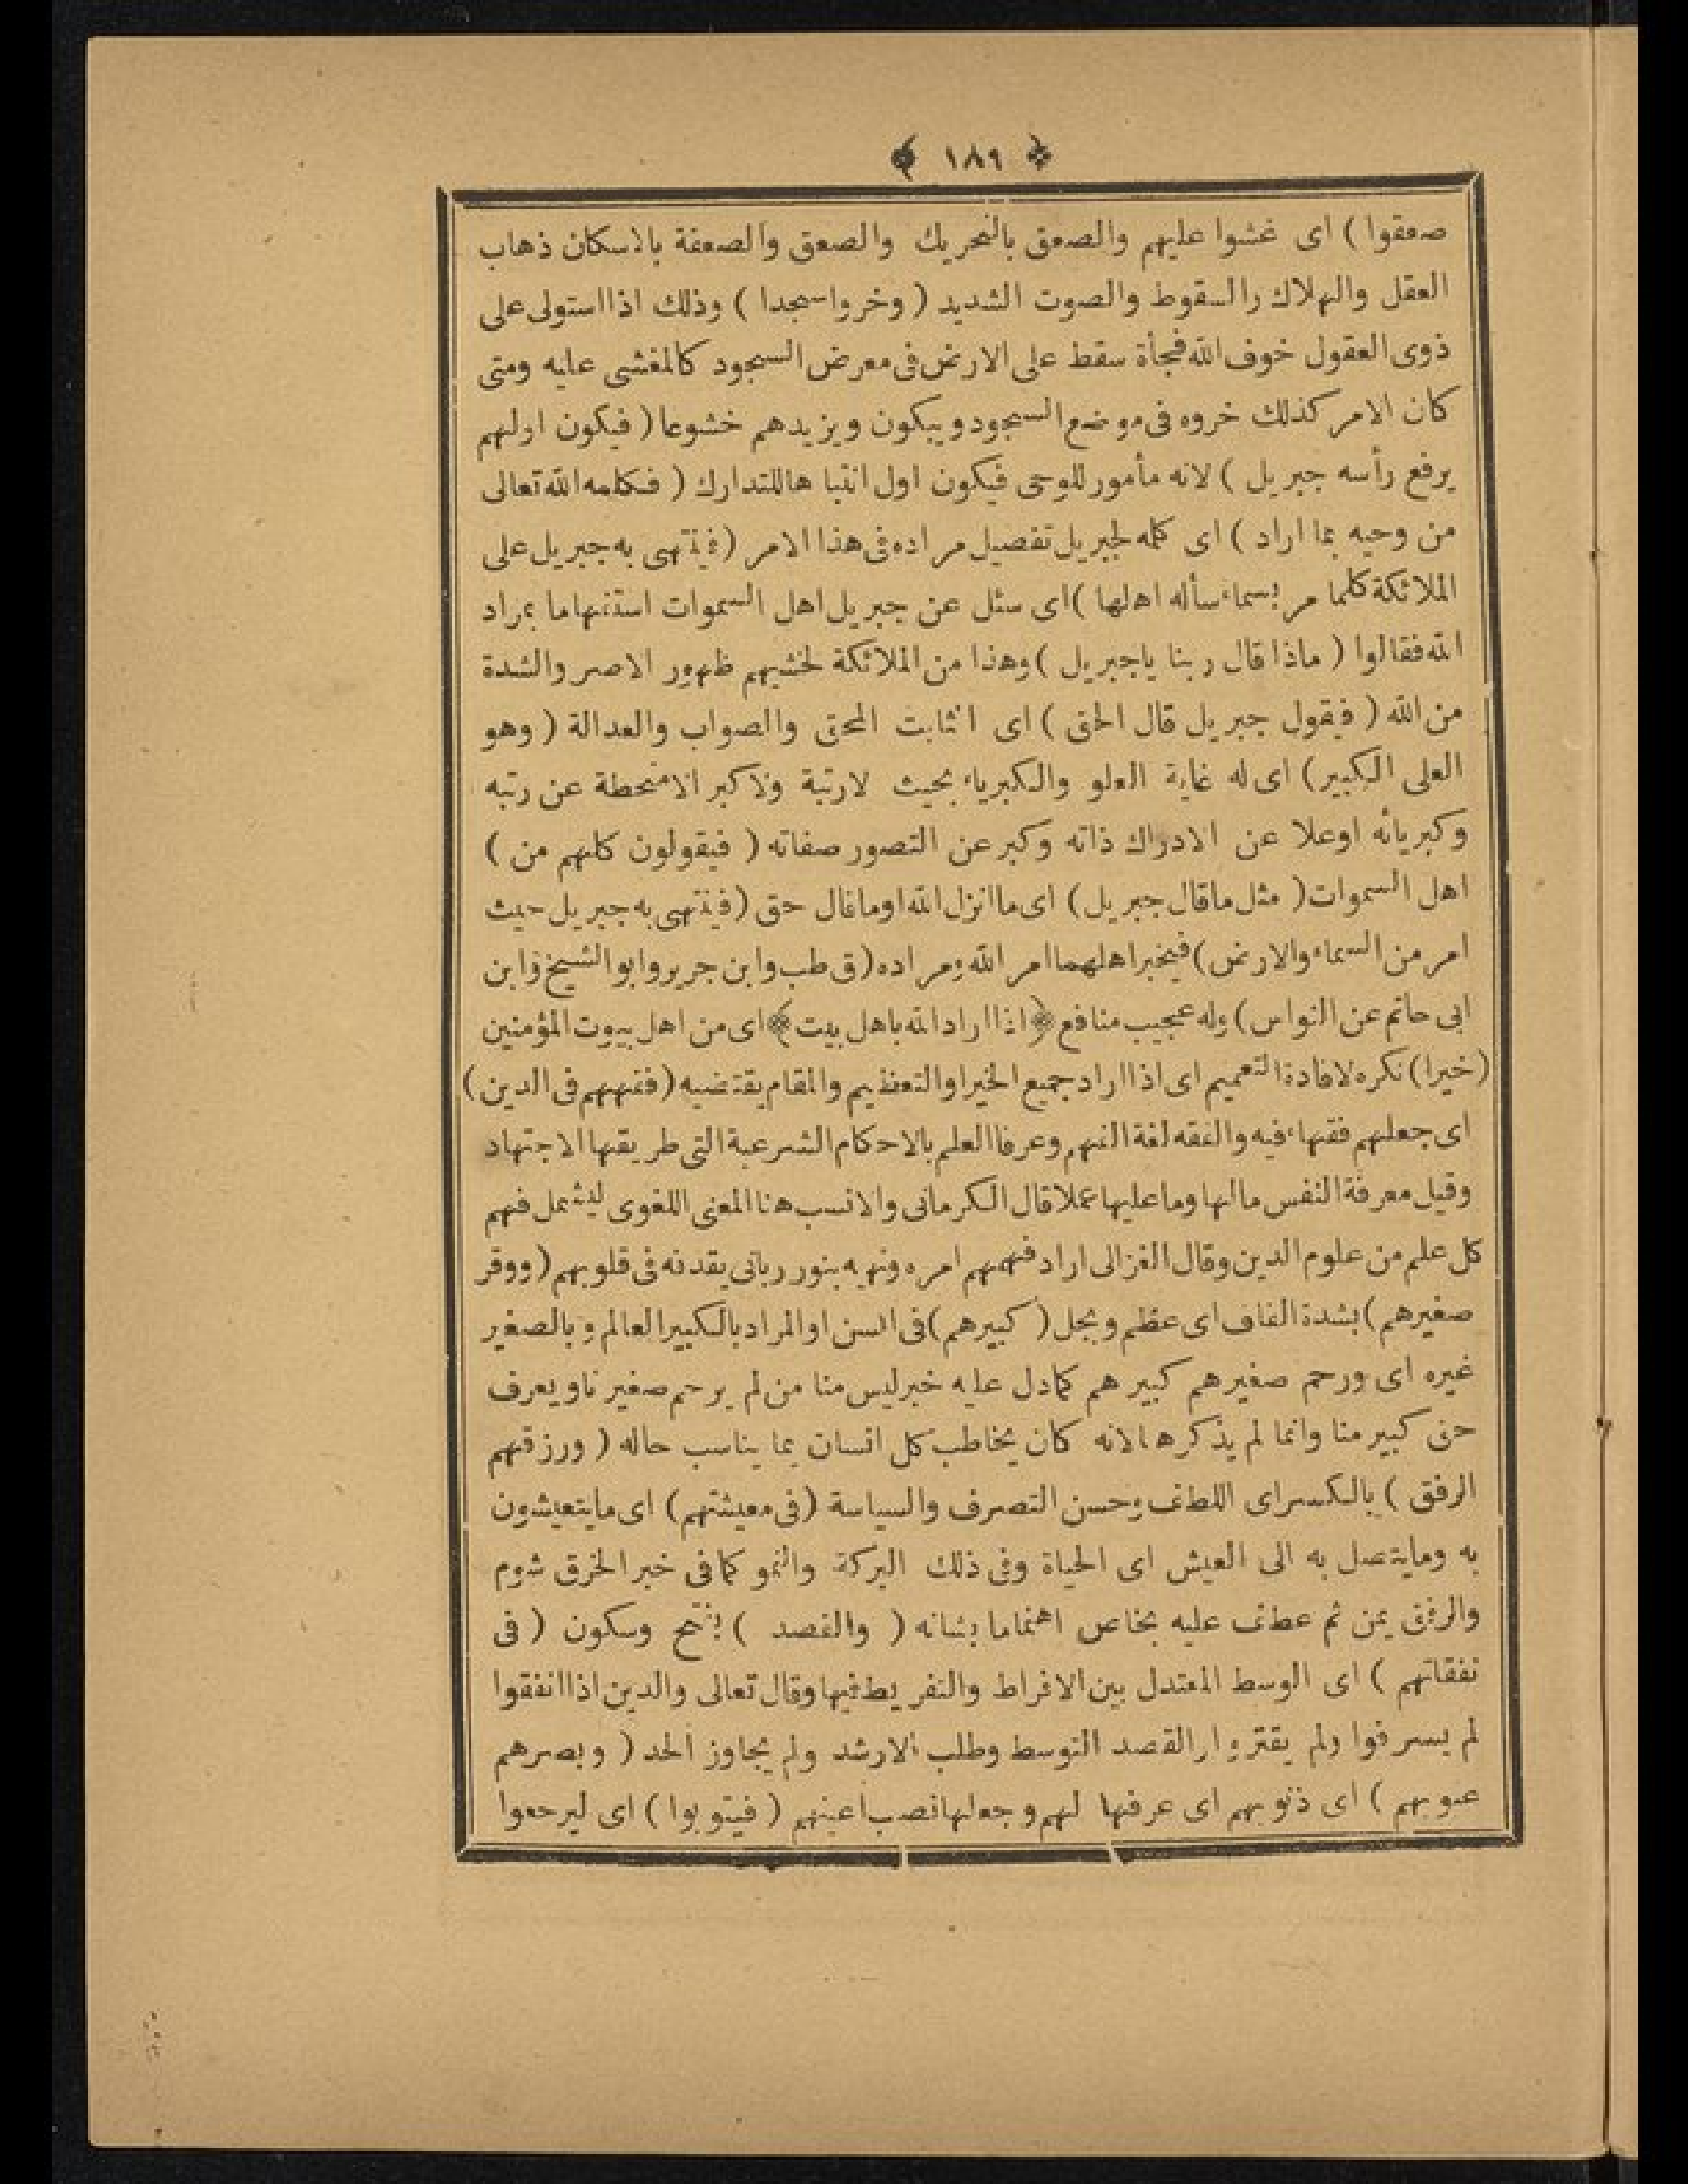 ﴿ ١٨٩ ﴾
صعقوا ) اى غشوا عليهم والصعق بالتحريك والصعق والصعقة بالاسكان ذهاب
العقل والهلاك والسقوط والصوت الشديد ( وخروا سجدا ) وذلك اذا استولى على
ذوى العقول خوف الله فجأة سقط على الارض فى معرض السجود كالمغشى عليه ومتى
كان الامر كذلك خروه فى موضع السجود ويبكون ويزيدهم خشوعا ( فيكون اولهم
يرفع رأسه جبريل ) لانه مأمور للوحى فيكون اول انتباها للتدارك ( فكلمه الله تعالى
من وحيه بما اراد ) اى كلمه لجبريل تفصيل مراده فى هذا الامر ( فينتهى به جبريل على
الملائكة كلما مر بسماء سأله اهلها ) اى سئل عن جبريل اهل السموات استفهاما بمراد
الله فقالوا ( ماذا قال ربنا ياجبريل ) وهذا من الملائكة لخشيهم ظهور الاصر والشدة
من الله ( فيقول جبريل قال الحق ) اى الثابت المحق والصواب والعدالة ( وهو
العلى الكبير ) اى له غاية العلو والكبرياء بحيث لارتبة ولا كبر الا منحطة عن رتبه
وكبريائه اوعلا عن الادراك ذاته وكبر عن التصور صفاته ( فيقولون كلهم من )
اهل السموات ( مثل ماقال جبريل ) اى ما انزل الله اوماقال حق ( فينتهى به جبريل حيث
امر من السماء والارض ) فيخبر اهلهما امر الله ومراده ( ق طب وابن جرير وابو الشيخ وابن
ابى حاتم عن النواس ) وله عجيب منافع ﴿ اذا اراد الله باهل بيت ﴾ اى من اهل بيوت المؤمنين
( خيرا ) نكره لافادة التعميم اى اذا اراد جميع الخير او التعظيم والمقام يقتضيه ( فقههم فى الدين )
اى جعلهم فقهاء فيه والفقه لغة الفهم وعرفا العلم بالاحكام الشرعية التى طريقها الاجتهاد
وقيل معرفة النفس مالها وما عليها عملا قال الكرمانى والانسب هنا المعنى اللغوى ليشمل فهم
كل علم من علوم الدين وقال الغزالى اراد فهمهم امره ونهيه بنور ربانى يقذفه فى قلوبهم ( ووقر
صغيرهم ) بشدة القاف اى عظم وبجل ( كبيرهم ) فى السن او المراد بالكبير العالم وبالصغير
غيره اى ورحم صغيرهم كبيرهم كمادل عليه خبر ليس منا من لم يرحم صغيرنا ويعرف
حق كبيرمنا وانما لم يذكرها لانه كان يخاطب كل انسان بما يناسب حاله ( ورزقهم
الرفق ) بالكسر اى اللطف وحسن التصرف والسياسة ( فى معيشتهم ) اى مايتعيشون
به ومايتصل به الى العيش اى الحياة وفى ذلك البركة والنمو كما فى خبر الخرق شوم
والرفق يمن ثم عطف عليه بخاص اهتماما بشانه ( والقصد ) بفتح وسكون ( فى
نفقاتهم ) اى الوسط المعتدل بين الافراط والتفريط فيها وقال تعالى والدين اذا انفقوا
لم يسرفوا ولم يقتروا رالقصد التوسط وطلب الارشد ولم يجاوز الحد ( وبصرهم
عيوبهم ) اى ذنوبهم اى عرفها لهم وجعلها نصب اعينهم ( فيتوبوا ) اى ليرجعوا